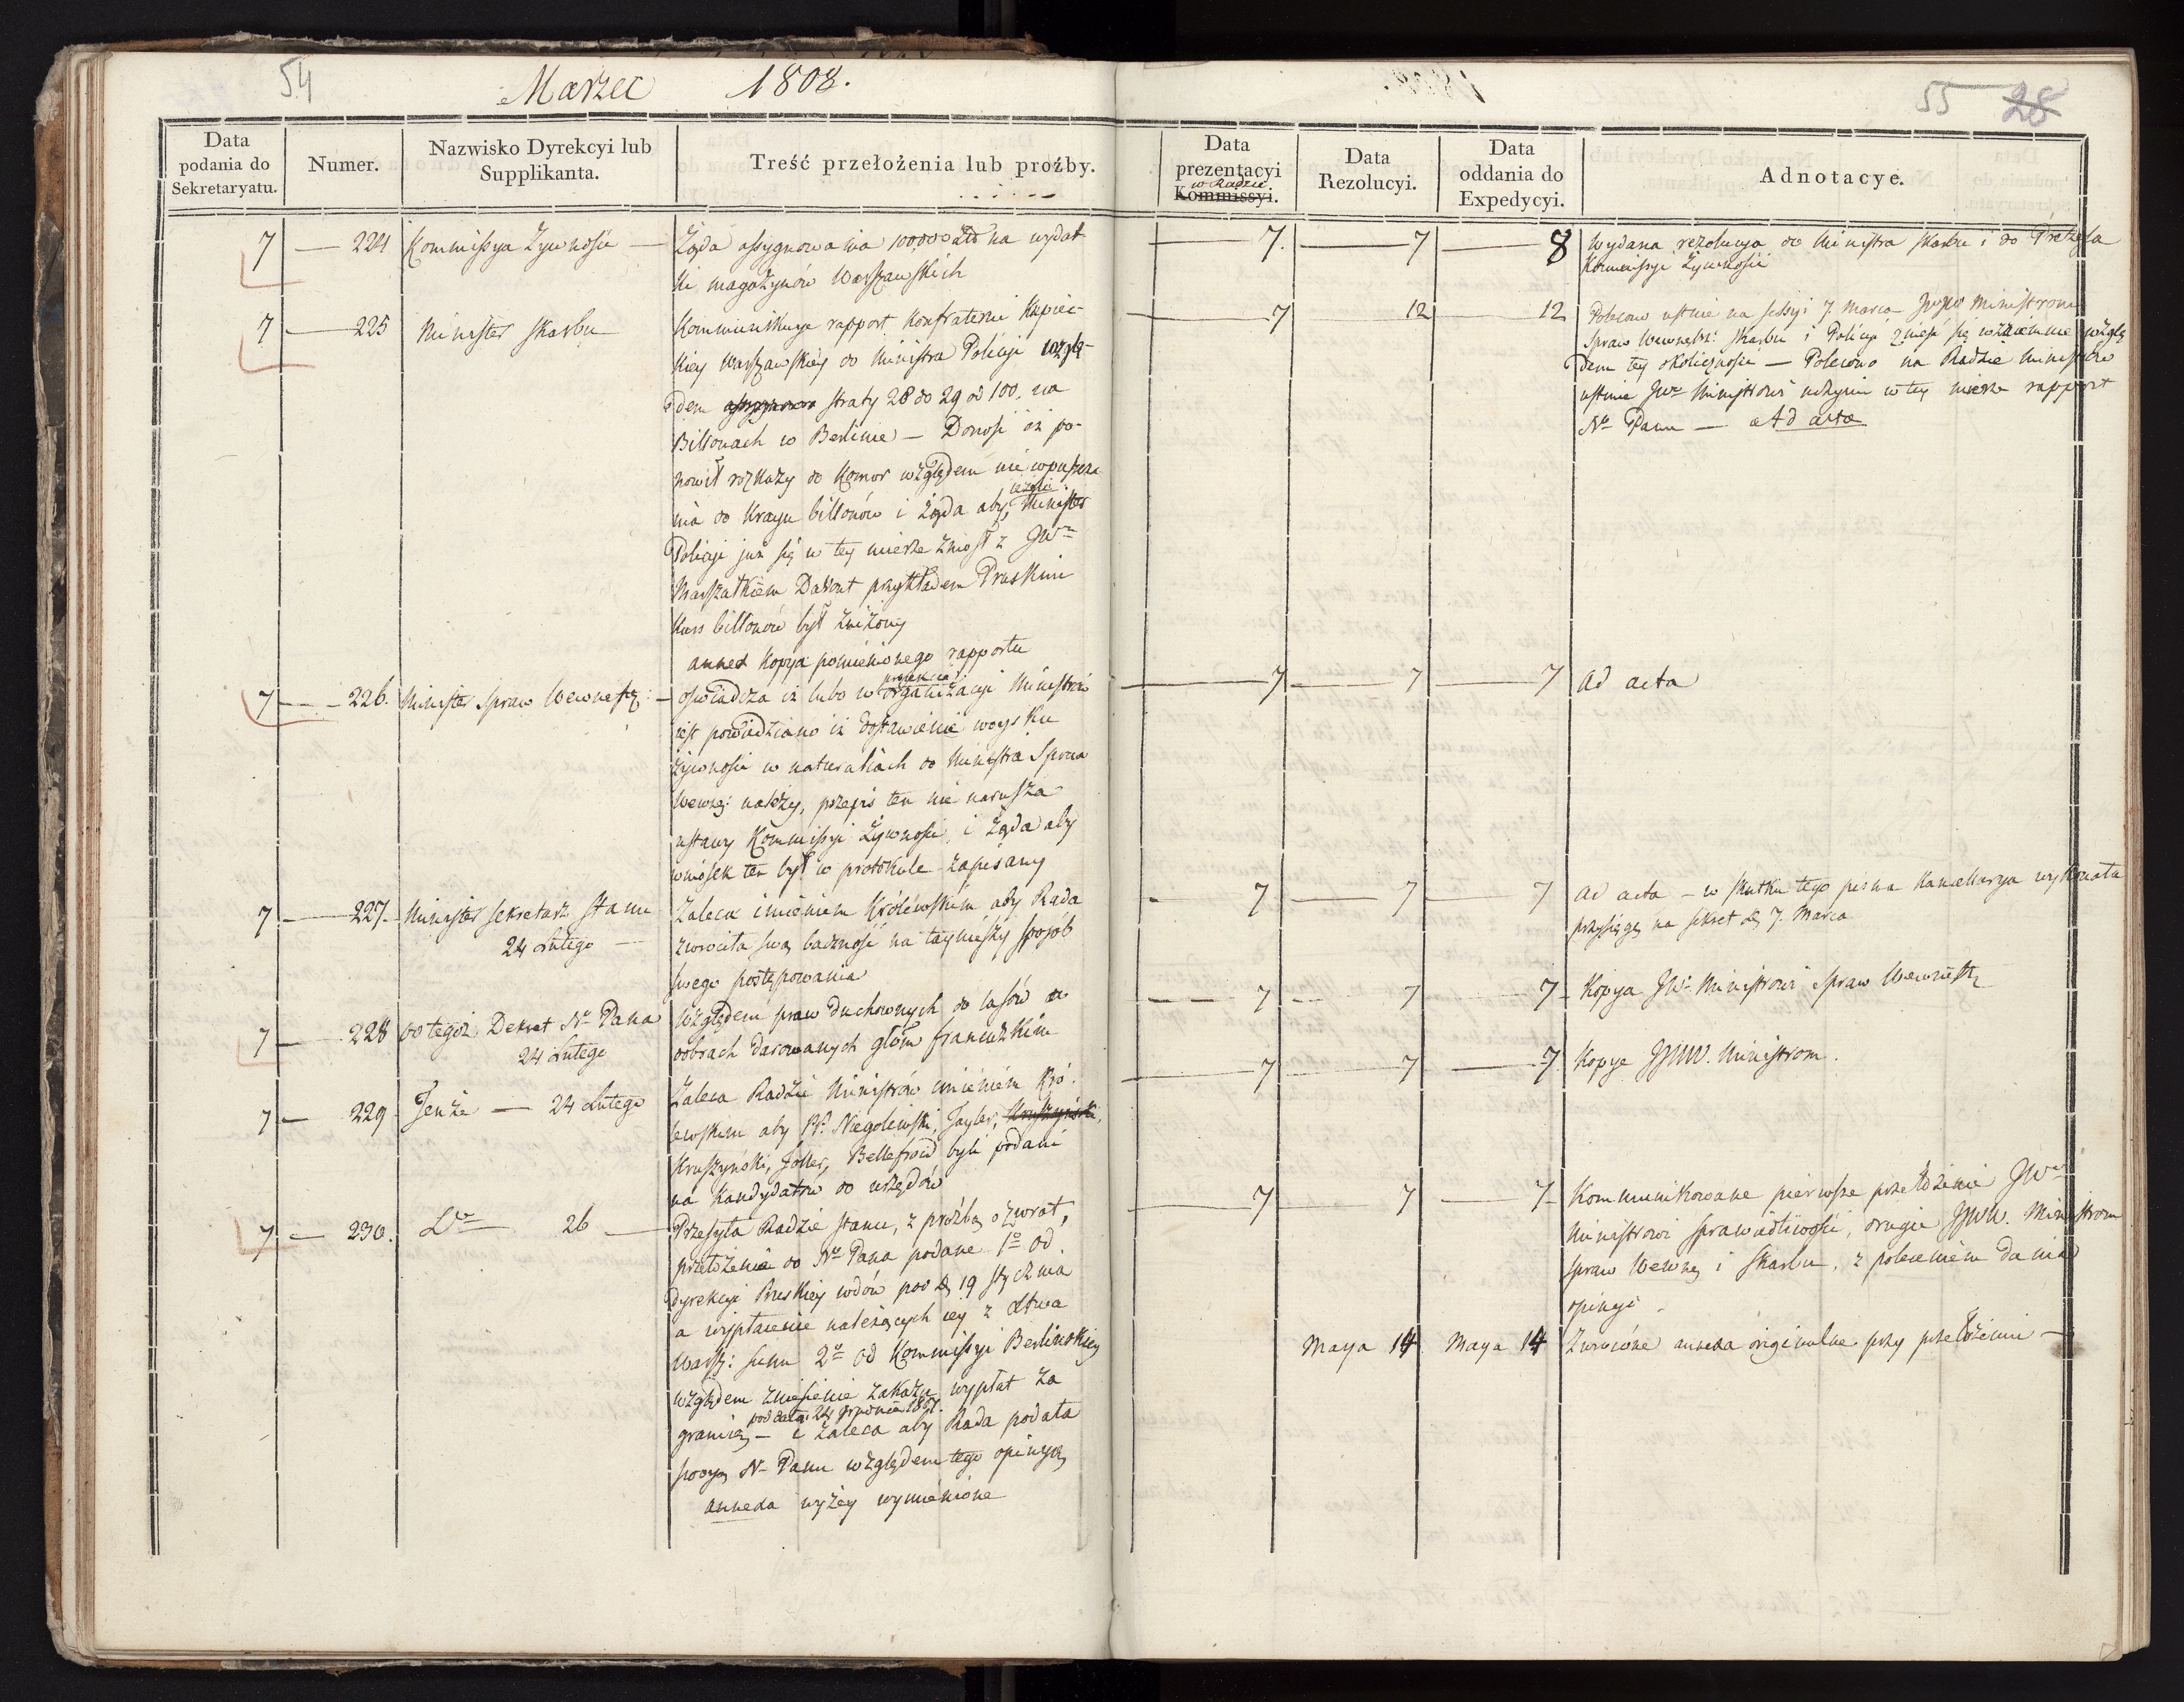 54
Marzec 1808.
Data podania do Sekretaryatu.
Numer.
Nazwisko Dyrekcyi lub Supplikanta.
Treść przełożenia lub proźby.
7 — 224 Kommissya Żywności —
Żąda assygnowania 100,000 Złł na wydat
ki magazynów Warszawskich
7 — 225 Minister Skarbu
Kommunikuje rapport Konfraterni Kupiec-
kiey Warszawskiey do Ministra Policyi wzglę-
dem straty 28 do 29 od 100. na
Billonach w Berlinie — Donosi iż po-
nowił rozkazy do Komor względem nie wpuszcza
nia do Kraju billonów i Żąda aby, ieżeli Minister
Policyi już się w tey mierze zniósł z JWm
Marszałkiem Davout przykładem Pruskim
Kurs billonów był zniżony
annex Kopya pomienionego rapportu
7 — 226. Minister Spraw Wewnętrz: —
oświadcza iż lubo w projekcie organizacyi Ministrów
iest powiedziano iż dostawienie woysku
żywności w naturaliach do Ministra Spraw
Wewnę: należy, przepis ten nie narusza
ustawy Kommissyi Żywności, i Żąda aby
wniosek ten był w protokule zapisany
7 — 227. Minister Sekretarz Stanu
24 Lutego —
Zaleca imieniem Królewskim aby Rada
zwrociła swą baczność na taynieyszy sposób
swego postępowania
7 — 228 od tegoż Dekret N. Pana
24 Lutego
Względem praw duchownych do lasów w
dobrach darowanych głłom francuzkim
7 — 229 Tenże — 24 Lutego
Zaleca Radzie Ministrów imieniem Kró-
lewskim aby PP. Niegolewski, Zayler, Kruszyński,
Kruszyński, Zoller, Bellefroid byli podani
na Kandydatów do urzędów
7 — 230. Dto 26 —
Przesyła Radzie Stanu, z proźbą o zwrot,
przełożenia do No Pana podane 1o od
dyrekcyi Pruskiey wdów pod d. 19 Stycznia
a wypłacenie należących iey z Xtwa
Warsz: summ 2o od Kommissyi Berlińskiey
względem zniesienie zakazu wypłat za
pod datą 24 Grudnia 1807.
granicę — i Zaleca aby Rada podała
swoyą N. Panu względem tego opinyą
annexa wyżey wymienione
55 28
Data prezentacyi w Radzie Kommissyi.
Data Rezolucyi.
Data oddania do Expedycyi.
Adnotacye.
7. — 7 — 8 Wydana rezolucya do Ministra Skarbu i do Prezesa
Kommissyi Żywności
7 12 12 Polecono ustnie na sessyi 7 Marca JWW Ministrom
Spraw Wewnętrz: Skarbu i Policyi znieść się wzaiemnie wzglę
dem tey okoliczności — Polecono na Radzie Ministrów
ustnie JWu Ministrowi uczynić w tey mierze rapport
No Panu — Ad acta
7 — 7 — 7 Ad acta
7 — 7 7 Ad acta — w skutku tego pisma Kancellarya wykonała
przysięgę na sekret d. 7. Marca
7 7 7 Kopya JW. Ministrowi Spraw Wewnętrz
7 7 7 Kopye JJWW. Ministrom.
7 7 7 Kommunikowane pierwsze przełożenie JWu
Ministrowi Sprawiedliwości, drugie JJWW. Ministrom
Spraw Wewnę i Skarbu, z poleceniem dania
opinyi.
Maya 14 Maya 14 Zwrócone annexa originalne przy przełożeniu —